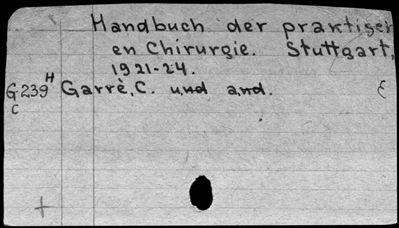 Handbuch der praktisch
en Chirurgie. Stuttgart,
1921-24.
G239 H Garrè, C. und and.
C